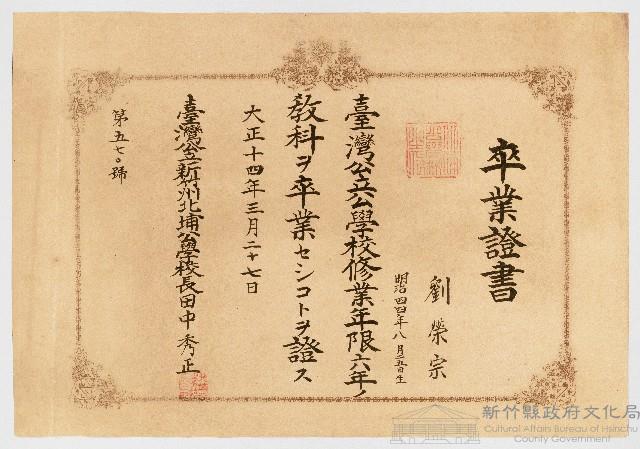 卒業證書
劉榮宗
明治四四年八月五日生
臺灣公立公學校修業年限六年ノ
教科ヲ卒業セシコトヲ證ス
大正十四年三月二十七日
臺灣公立新竹州北埔公學校長田中秀正
第五七〇號
新竹縣政府文化局
Cultural Affairs Bureau of Hsinchu
County Government